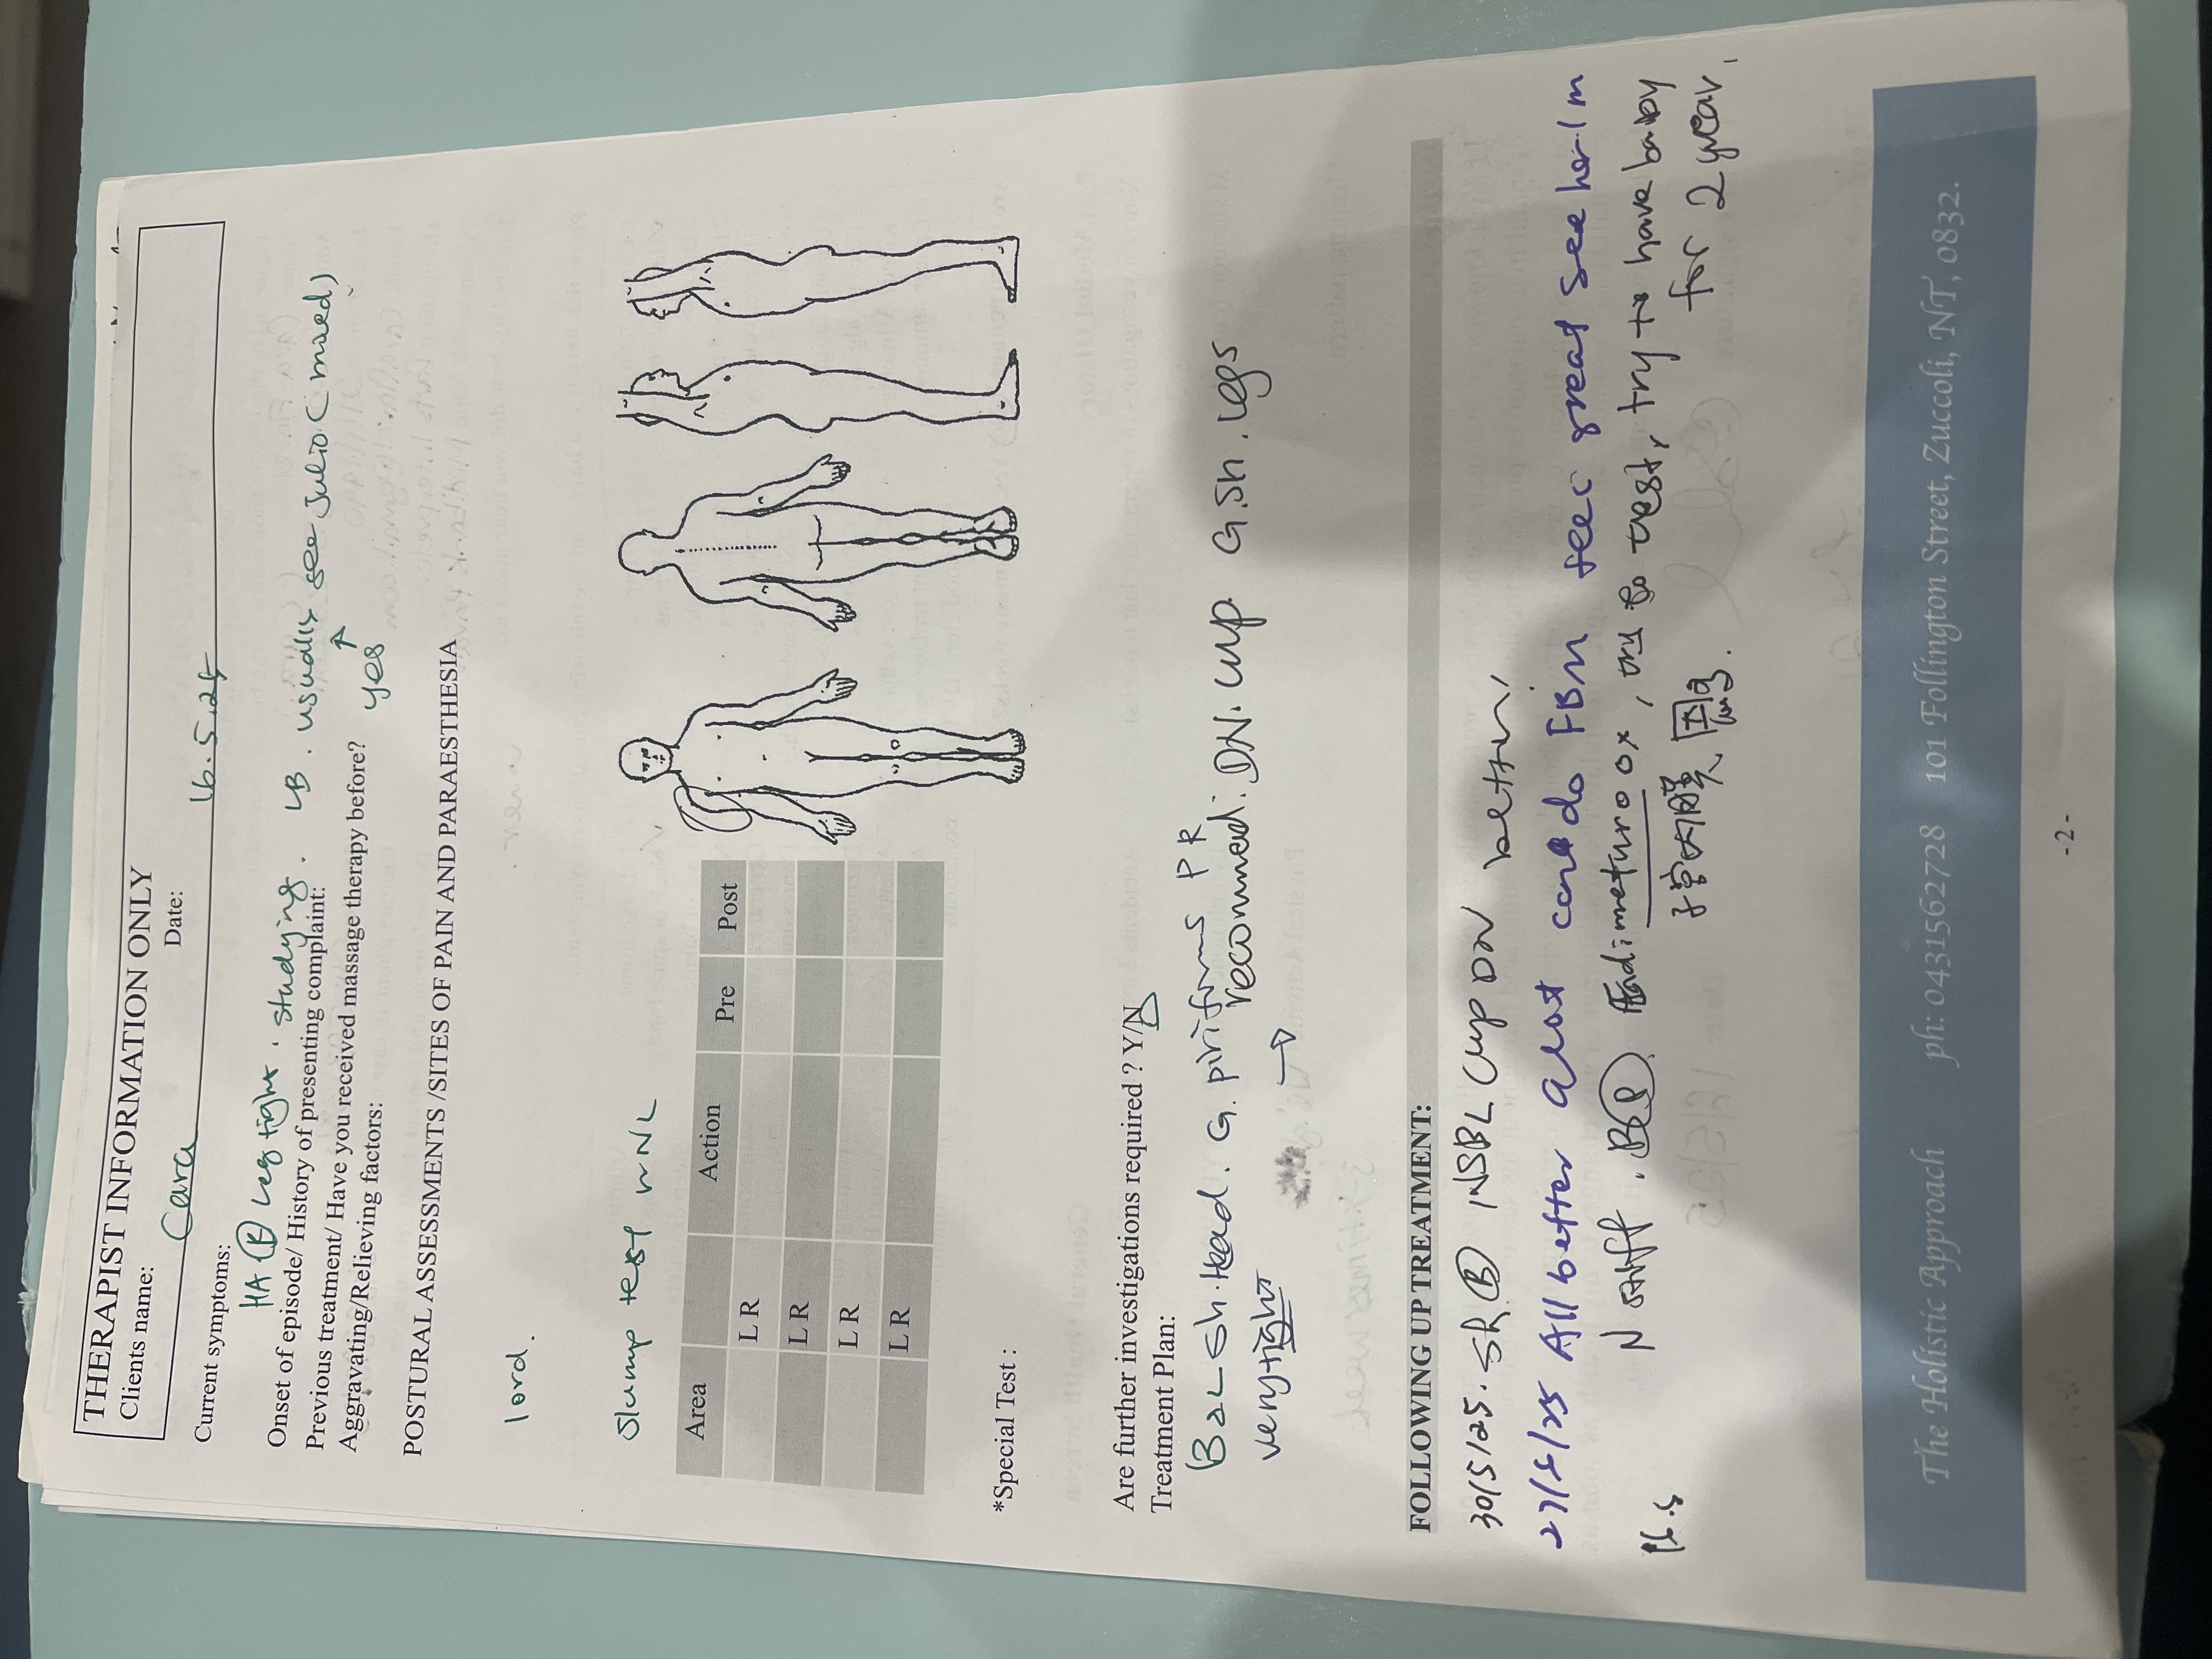 THERAPIST INFORMATION ONLY
Clients name: Cara Date: 16.5.25
Current symptoms:
HA Ⓑ Leg tight. studying. LB. usually see Julio (moved)
Onset of episode/ History of presenting complaint:
Previous treatment/ Have you received massage therapy before? yes
Aggravating/Relieving factors:
POSTURAL ASSESSMENTS /SITES OF PAIN AND PARAESTHESIA
lord.
Slump test WNL
Area Action Pre Post
L R
L R
L R
L R
*Special Test :
Are further investigations required ? Y/N
Treatment Plan:
BaL sh. Head. G. piriforms PR
very tight → recommend: DN. cup. G. Sh. Legs
FOLLOWING UP TREATMENT:
30/5/25. Ⓑ NSBL Cup DN better,
All better do FBM feel great see her 1m
N stiff. to rest, try to have baby
子宫内膜 for 2 year.
The Holistic Approach ph: 0431562728 101 Follington Street, Zuccoli, NT, 0832.
-2-